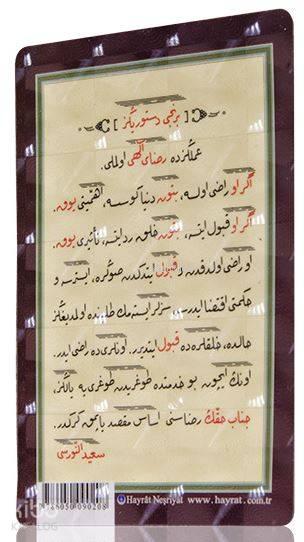 [ برنجی دستوریڭز ]
عملڭزده رضای الٰهی اولملی.
اگر او راضی اولسه، بتون دنیا كوسسه، اهمیتی یوق.
اگر او قبول ایتسه، بتون خلق رد ایتسه، تأثیری یوق.
او راضی اولدقدن و قبول ایتدكدن صوڭره، ایسترسه و
حكمتی اقتضا ایدرسه، سزلر ایسته‌مك طلبنده اولمدیغڭز
حالده، خلقلره ده قبول ایتدیرر. اونلری ده راضی ایدر.
اونڭ ایچون بو خدمتده طوغریدن طوغری‌یه یالڭز
جناب حقڭ رضاسنی اساس مقصد یاپمق گركدر.
سعید النورسی
Hayrât Neşriyat www.hayrat.com.tr
KATALOG